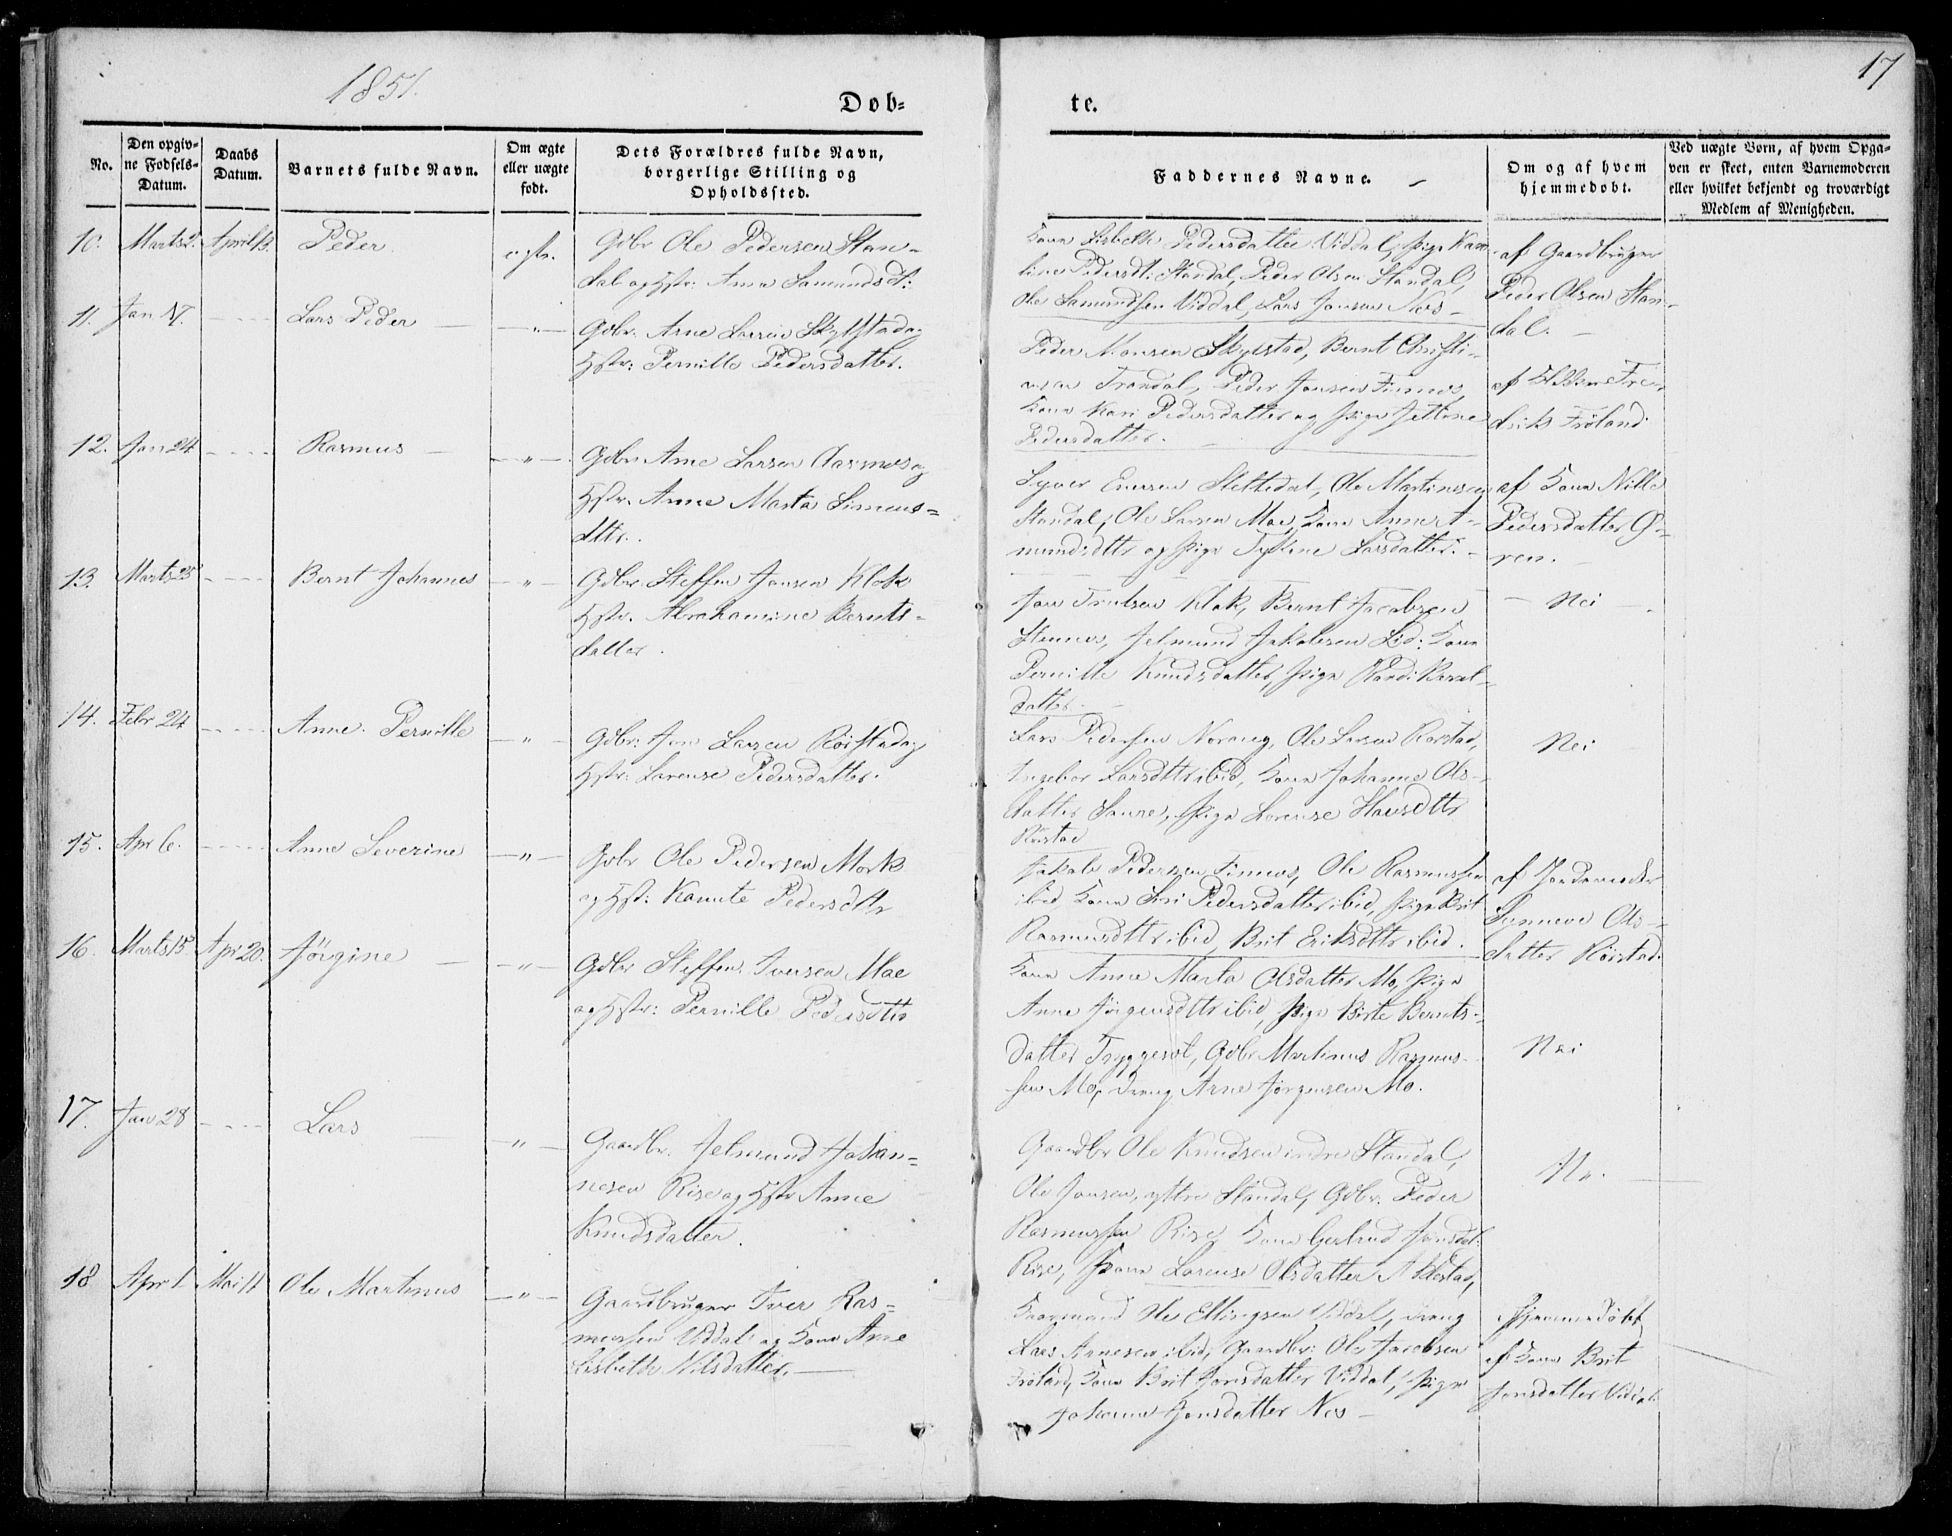 1851.
17
Døb-
te.
No.
Den opgiv-
ne Fødsels-
Datum.
Daabs
Datum.
Barnets fulde Navn.
Om ægte
eller uægte
født.
Dets Forældres fulde Navn,
borgerlige Stilling og
Opholdssted.
Faddernes Navne.
Om og af hvem
hjemmedøbt.
Ved uægte Børn, af hvem Opga-
ven er skeet, enten Barnemoderen
eller hvilket bekjendt og troværdigt
Medlem af Menigheden.
10. Marts 2. April 13. Peder
Gdbr Ole Pedersen Stan-
dal og Hstr: Anna Samunds D:
Kona Lisbeth Pedersdatter Viddal, Pige Karo-
line Pedersdt: Standal, Peder Olsen Standal,
Ole Samundsen Viddal, Lars Jonsen Nes
af Gaardbruger
Peder Olsen Stan-
dal.
11. Jan 17. Lars Peder — " —
Gdbr. Arne Larsen Skylstad og
Hstr: Pernille Pedersdatter.
Peder Monsen Skylstad, Bernt Christi-
ansen Trandal, Peder Jonsen Finnes,
Kona Kari Pedersdatter og Pige Jettine
Pedersdatter.
af Fre-
drik Frøland
12. Jan 24 Rasmus — " —
Gdbr. Arne Larsen Aarsnes og
Hstr. Anne Marta Simens-
dttr.
Syver Knudsen Slettedal, Ole Martinssen
Standal, Ole Larsen Moe, Kona Anne A-
mundsdttr og Pige Larsdatter.
af Kona Nille
Pedersdatter Ø-
ren.
13. Marts 25 Bernt Johannes — " —
Gdbr. Steffen Jonsen Klok
Hstr. Abrahamine Bernts-
datter.
Jon Trulsen Klok, Bernt Jacobsen
Stennes, Jetmund Jakobsen Kona
Pernille Knudsdatter, Pige Randi Bernt-
datter.
— Nei —
14. Febr 24 Anne Pernille — " —
Gdbr: Jon Larsen Rørstad og
Hstr: Larense Pedersdatter.
Lars Pedersen Norang, Ole Larsen Rørstad,
Ingebor Larsdttr ibid, Kona Johanne Ols-
datter Saure, Pige Lorense Hansdttr
Rørstad
Nei
15. Apr 6. Anne Severine — " —
Gdbr Ole Pedersen Mork
og Hst: Kanute Pedersdttr
Jakob Pedersen Finnes, Ole Rasmussen
ibid Kona Siri Pedersdatter ibid, Pige Brit
Rasmusdttr ibid, Brit Eriksdttr ibid.
af Jordemoder
Synneve Ols-
datter Rørstad.
16. Marts 15 Apr 20. Jørgine — " —
Gdbr Steffen Iversen Moe
og Hstr: Pernille Pedersdttr
Kona Anne Marta Olsdatter Mo, Pige
Anne Jørgensdttr ibid, Pige Birte Bernts-
datter Gdbr Martinus Rasmus-
sen Mo, Dreng Arne Jørgensen Mo.
Nei
17. Jan 28 Lars — " —
Gaardbr. Jetmund Johan-
nesen Rise og Hstr Anne
Knudsdatter.
Gaardbr Ole Knudsen indre Standal,
Ole Jonsen, yttre Standal, Gdbr. Peder
Rasmussen Rise, Kona Gertrud Jonsdt:
Rise, Kona Lorense Olsdatter Aklestad,
18 Apr 1 Mai 11 Ole Martinus — " —
Gaardbruger Iver Ras-
mussen Viddal og Kona Arne
Lisbeth Nilsdatter.
Ole Ellingsen Viddal, Dreng
Lars Arnesen ibid, Gaardbr: Ole Jacobsen
Frøland, Kona Brit Jonsdatter Viddal, Pige
Johanne Jonsdatter Nes —
Hjemmedøbt
af Kona Brit
Jonsdatter Viddal